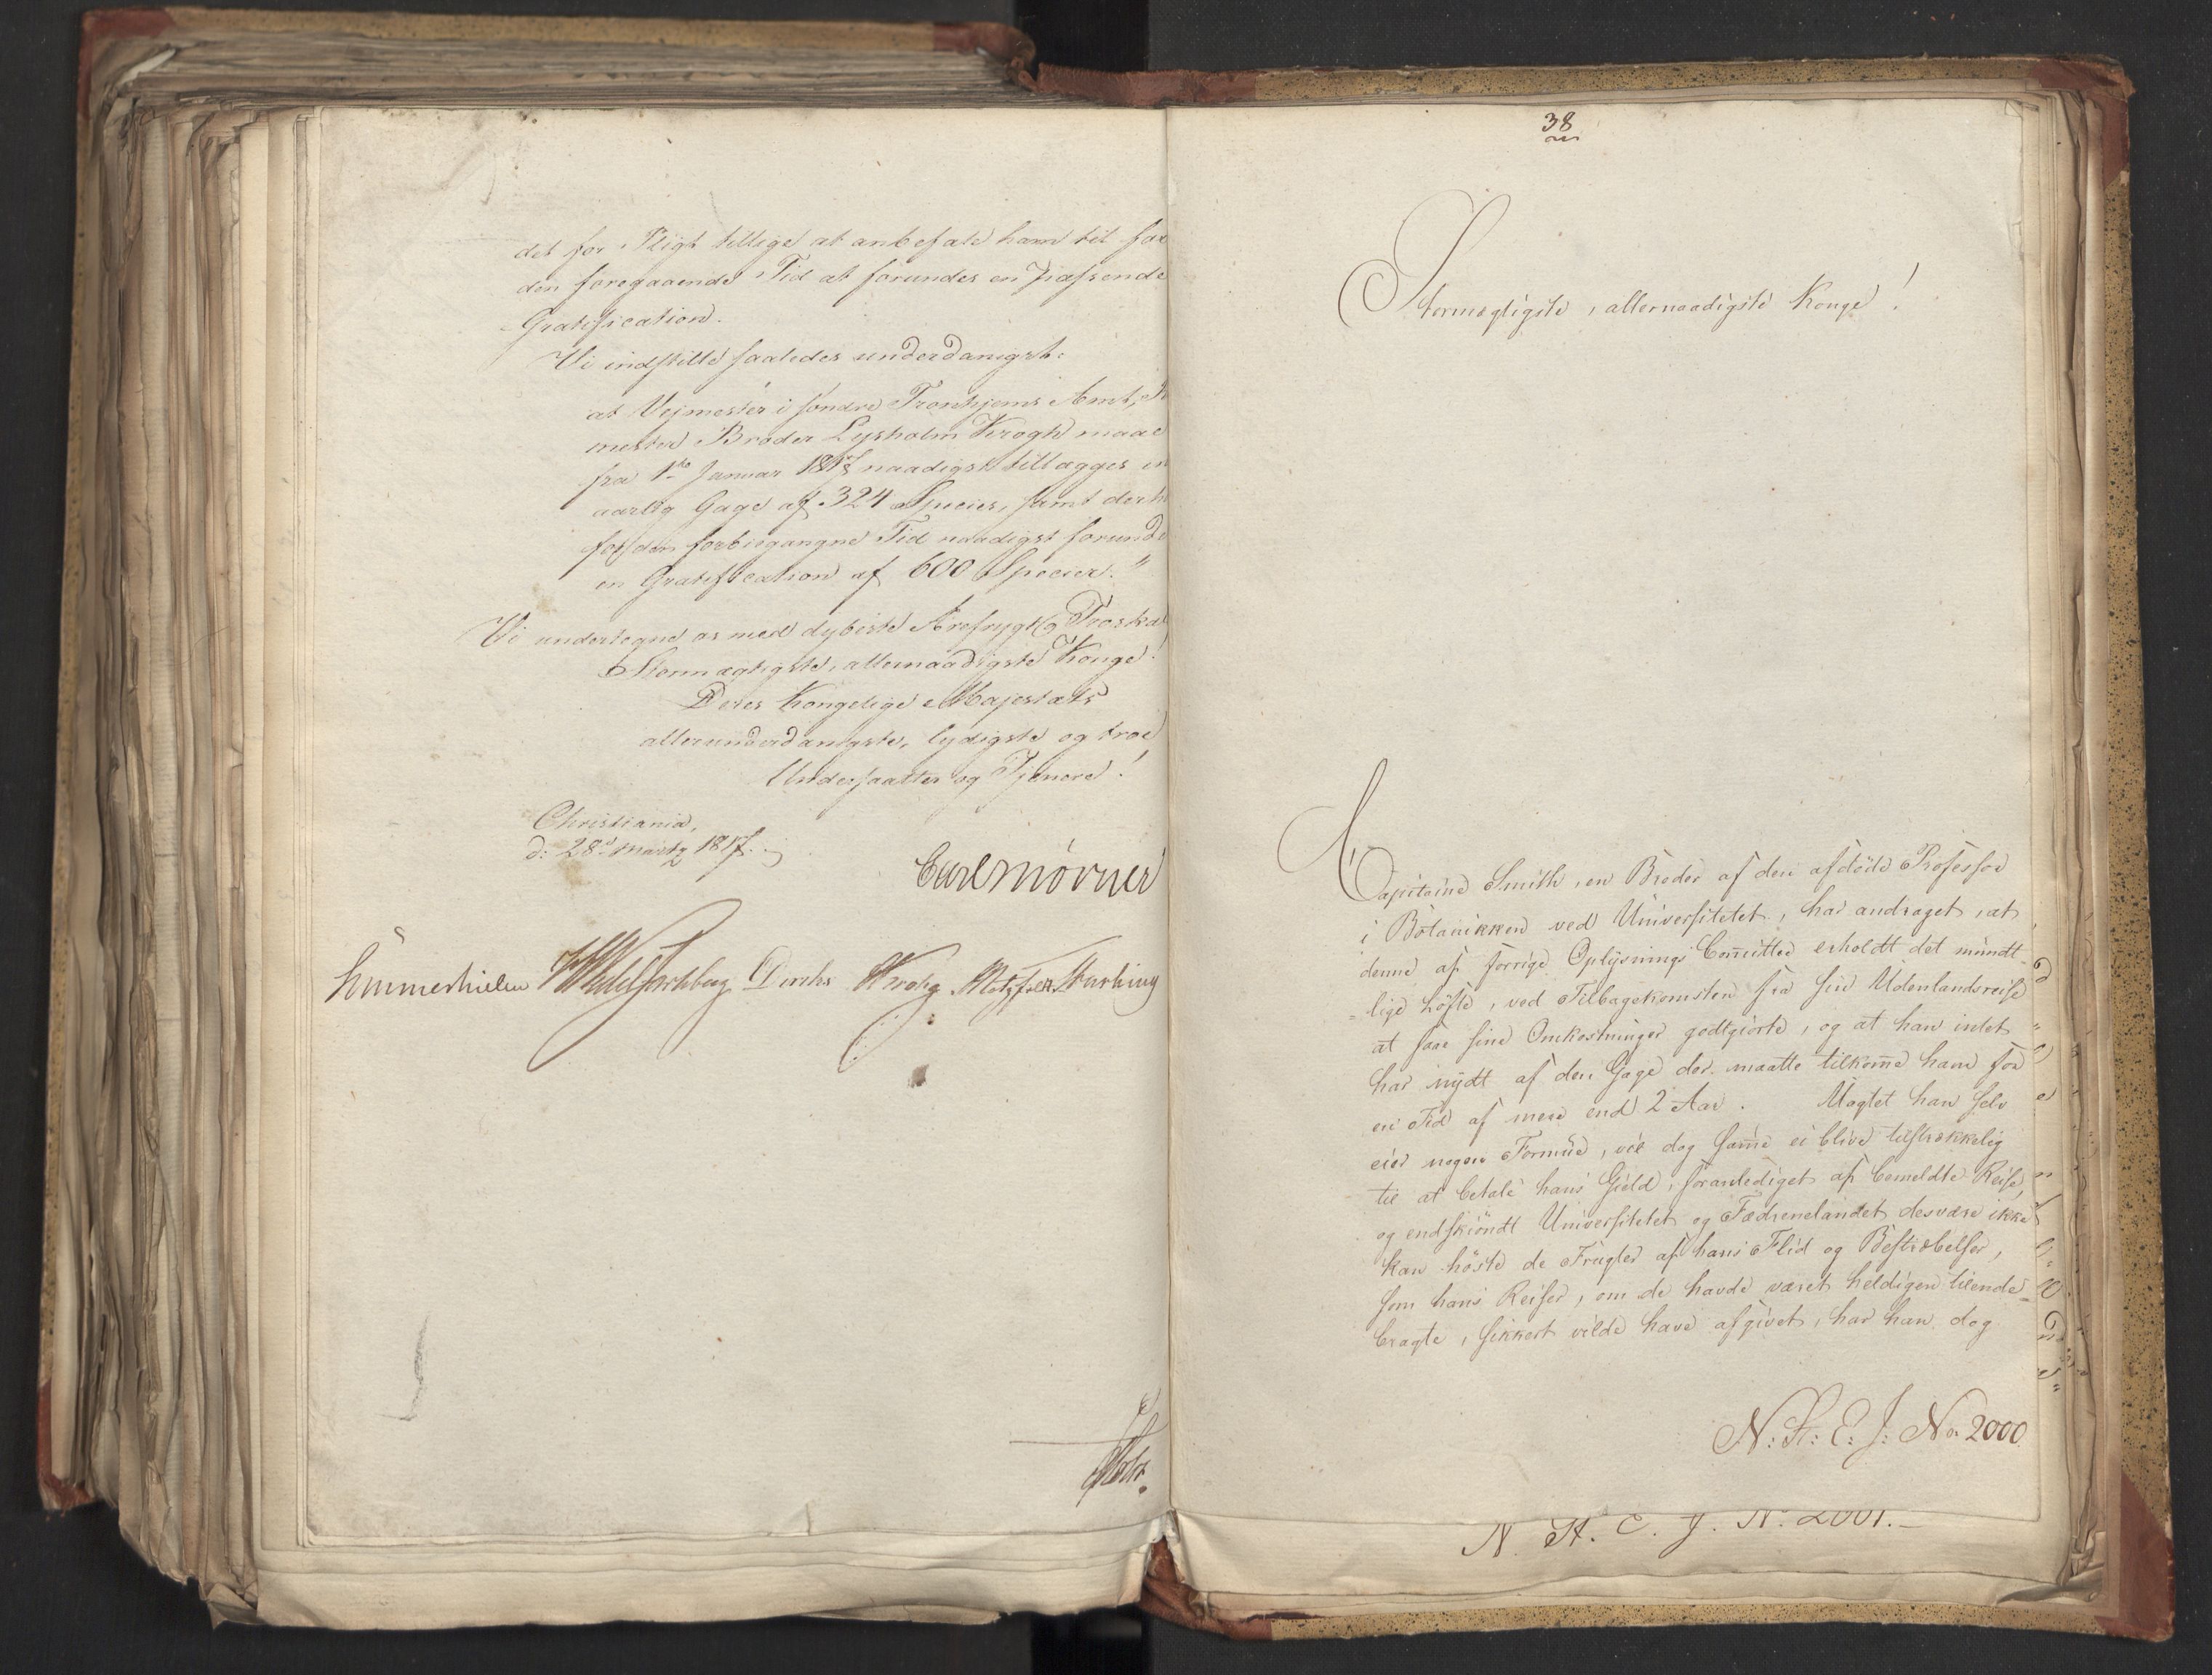 det for Pligt tillige at anbefale ham til for
den foregaaende Tid at forundes en passende
Gratification.
Vi indstille saaledes underdanigst:
at Vejmester i søndre Tronhjems Amt,
mester Broder Lysholm Krogh maae
fra 1ste Januar 1817 naadigst tillægges en
aarlig Gage af 324 Species, samt derh
for den forbigangne Tid naadigst forunde
en Gratification af 600 Species."
Vi undertegne os med dybeste Ærefrygt og Troska
Stormægtigste, allernaadigste Konge!
Deres Kongelige Majestæts
allerunderdanigste, lydigste og troe
Undersaatter og Tjenere!
Christiania,
d: 28d Martz 1817.
Carl Mörner
Hummerhielm Wedel Jarlsberg Diriks Krohg Motzfeldt Starbing
Holst.
38
Stormægtigste, allernaadigste Konge!
Capitaine Smith, en Broder af den afdöde Professor
i Botanikken ved Universitetet, har andraget, at
denne af forrige Oplysnings Comittee erholdt det mundt-
=lige Löfte, ved Tilbagekomsten fra sin Udenlandsreise
at faae sine Omkostninger godtgiorte, og at han intet
har nydt af den Gage der maatte tilkomme ham for
en Tid af mere end 2 Aar. Uagtet han selv
eier nogen Formue, vil dog samme ei blive tilstrækkelig
til at betale hans Gield, foranlediget af bemeldte Reise,
og endskiöndt Universitetet og Fædrenelandet desværre ikke
kan höste de Frugter af hans Flid og Bestræbelser,
som hans Reiser, om de havde været heldigen tilende-
bragte, sikkert vilde have afgivet, har han dog
N: St: E: J: No 2000
N. St. E. J. No. 2001.